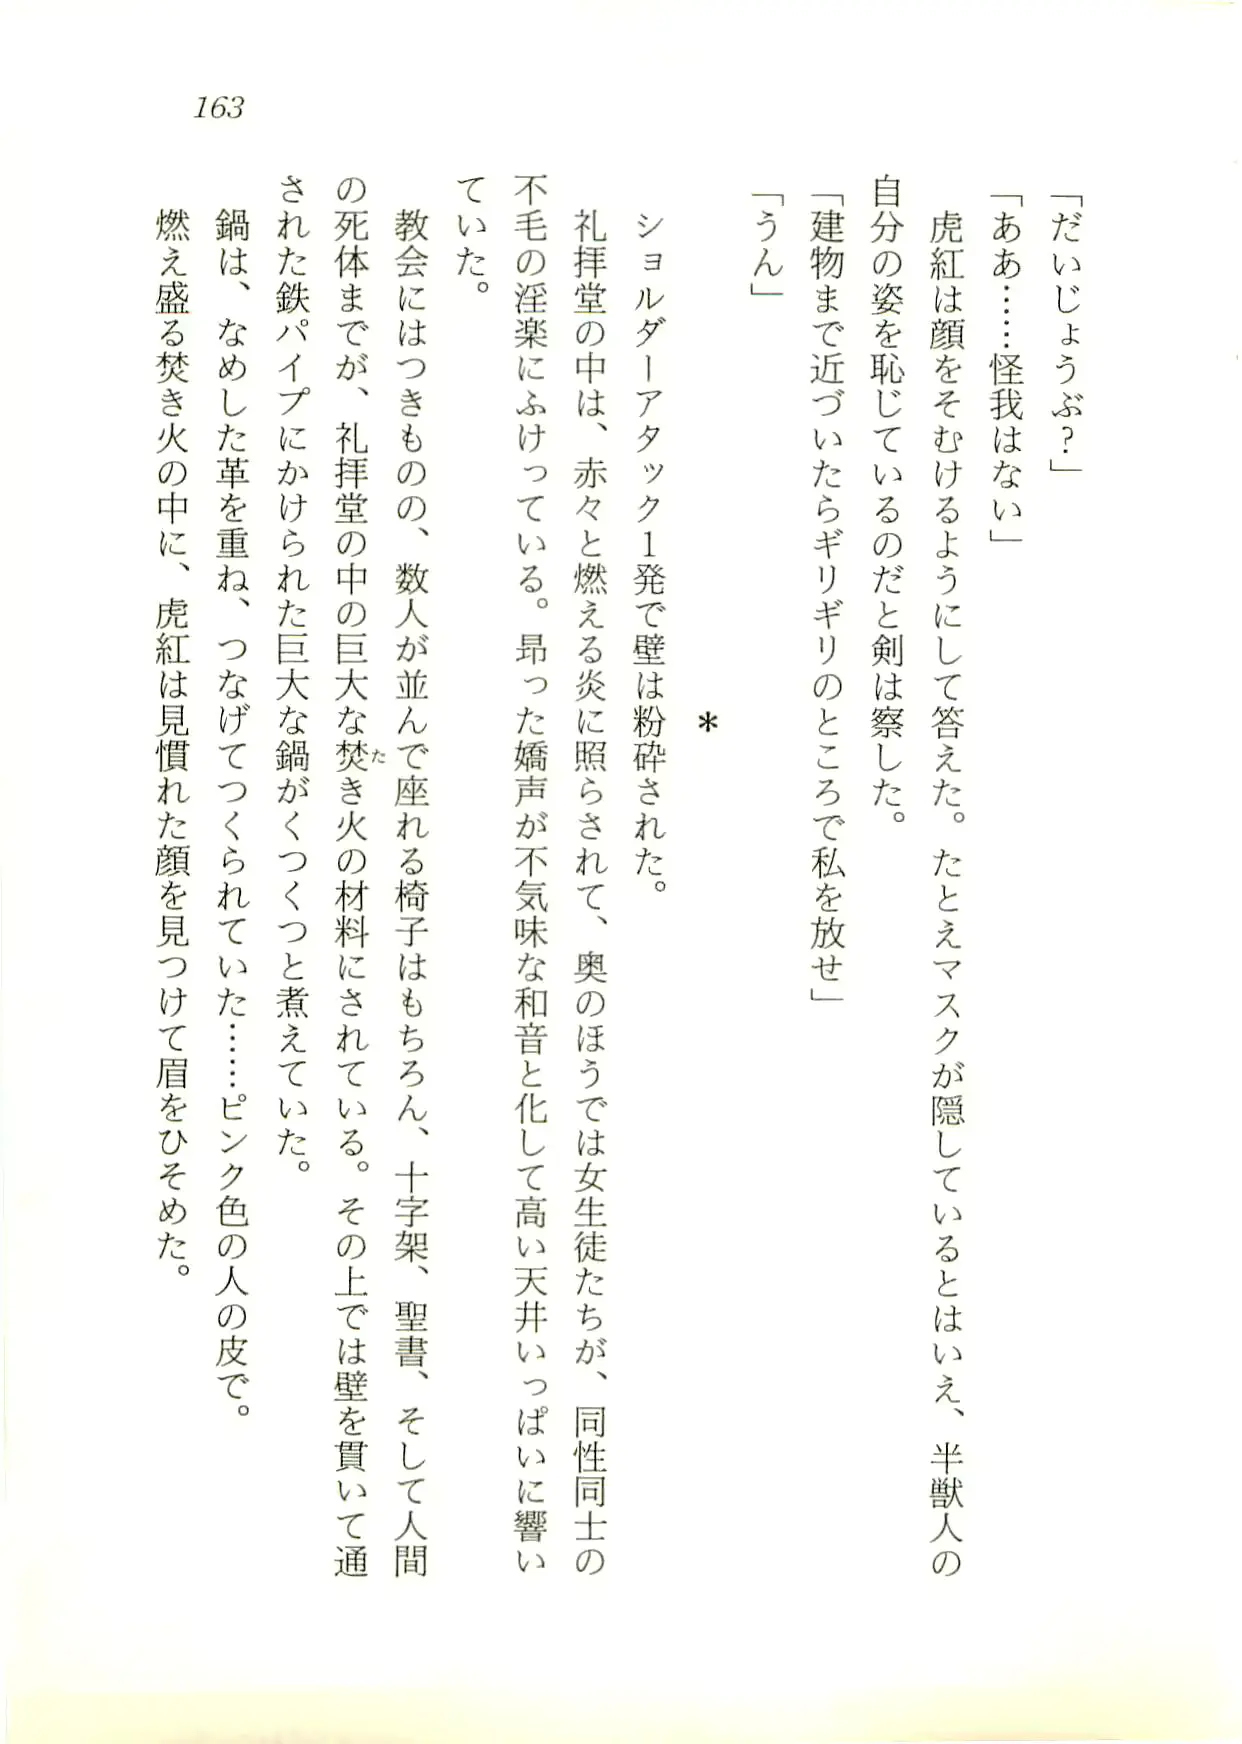 163
「だいじょうぶ？」
「ああ……怪我はない」
　虎紅は顔をそむけるようにして答えた。たとえマスクが隠しているとはいえ、半獣人の
自分の姿を恥じているのだと剣は察した。
「建物まで近づいたらギリギリのところで私を放せ」
「うん」
＊
　ショルダーアタック１発で壁は粉砕された。
　礼拝堂の中は、赤々と燃える炎に照らされて、奥のほうでは女生徒たちが、同性同士の
不毛の淫楽にふけっている。昂った嬌声が不気味な和音と化して高い天井いっぱいに響い
ていた。
　教会にはつきものの、数人が並んで座れる椅子はもちろん、十字架、聖書、そして人間
の死体までが、礼拝堂の中の巨大な焚き火の材料にされている。その上では壁を貫いて通
た
された鉄パイプにかけられた巨大な鍋がくつくつと煮えていた。
　鍋は、なめした革を重ね、つなげてつくられていた……ピンク色の人の皮で。
　燃え盛る焚き火の中に、虎紅は見慣れた顔を見つけて眉をひそめた。